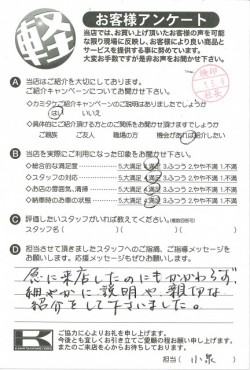 軽
お客様アンケート
当店では、お買い上げ頂いたお客様の声を可能
な限り現場に反映し、お客様により良い商品と
サービスを提供する事に努めています。
大変お手数ですが是非お声をお聞かせ下さい。
A 当店はご紹介を大切にしております。
ご紹介キャンペーンについてお聞かせ下さい。
◇カミタケご紹介キャンペーンのご説明はありましたでしょうか
はい いいえ
◇具体的にご紹介頂ける方とのご関係をお聞かせ頂けますでしょうか
ご親族 ご友人 職場の方 機会があれば紹介したい
B 当店を実際にご利用になった印象をお聞かせ下さい。
◇総合的な満足度 5.大満足 4.満足 3.ふつう 2.やや不満 1.不満
◇スタッフの対応 5.大満足 4.満足 3.ふつう 2.やや不満 1.不満
◇お店の雰囲気、清掃 5.大満足 4.満足 3.ふつう 2.やや不満 1.不満
◇納車時のお車の状態 5.大満足 4.満足 3.ふつう 2.やや不満 1.不満
C 評価したいスタッフがいれば教えてください。(複数回答可)
スタッフ名( )( )( )
D 担当させて頂きましたスタッフへのご指摘、ご指導メッセージを
お願いします。応援メッセージもぜひお願いします。
急に来店したのにもかかわらず、
細やかに説明や、親切な
紹介をして下さいました。
ご協力に心よりお礼を申し上げます。
今後とも宜しくお引き立てご愛顧の程お願い申し上げます。
またのご来店を心からお待ちしております。
担当( 小泉 )